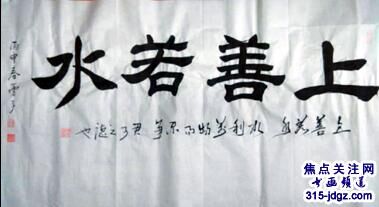 上善若水
上善若水 水利萬物而不爭
丙申春
焦点关注网
书画频道
315-jdgz.com